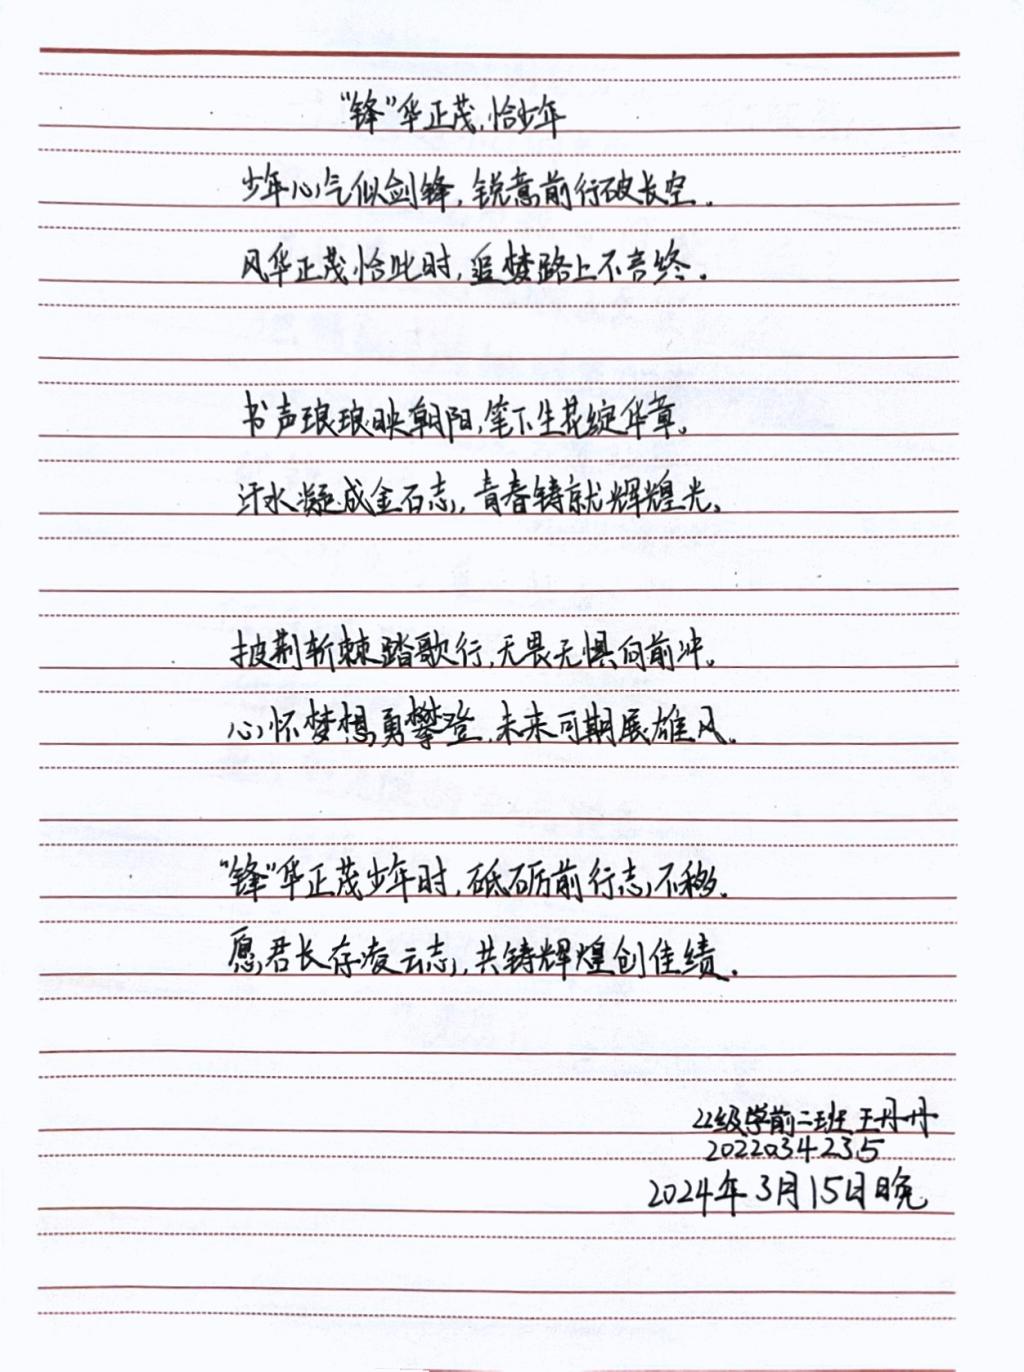 “锋”华正茂，恰少年
少年心气似剑锋，锐意前行破长空。
风华正茂恰此时，追梦路上不言终。
书声琅琅映朝阳，笔下生花绽华章。
汗水凝成金石志，青春铸就辉煌光。
披荆斩棘踏歌行，无畏无惧向前冲。
心怀梦想勇攀登，未来可期展雄风。
“锋”华正茂少年时，砥砺前行志不移。
愿君长存凌云志，共铸辉煌创佳绩。
22级学前二班 王丹丹
2022034235
2024年3月15日晚